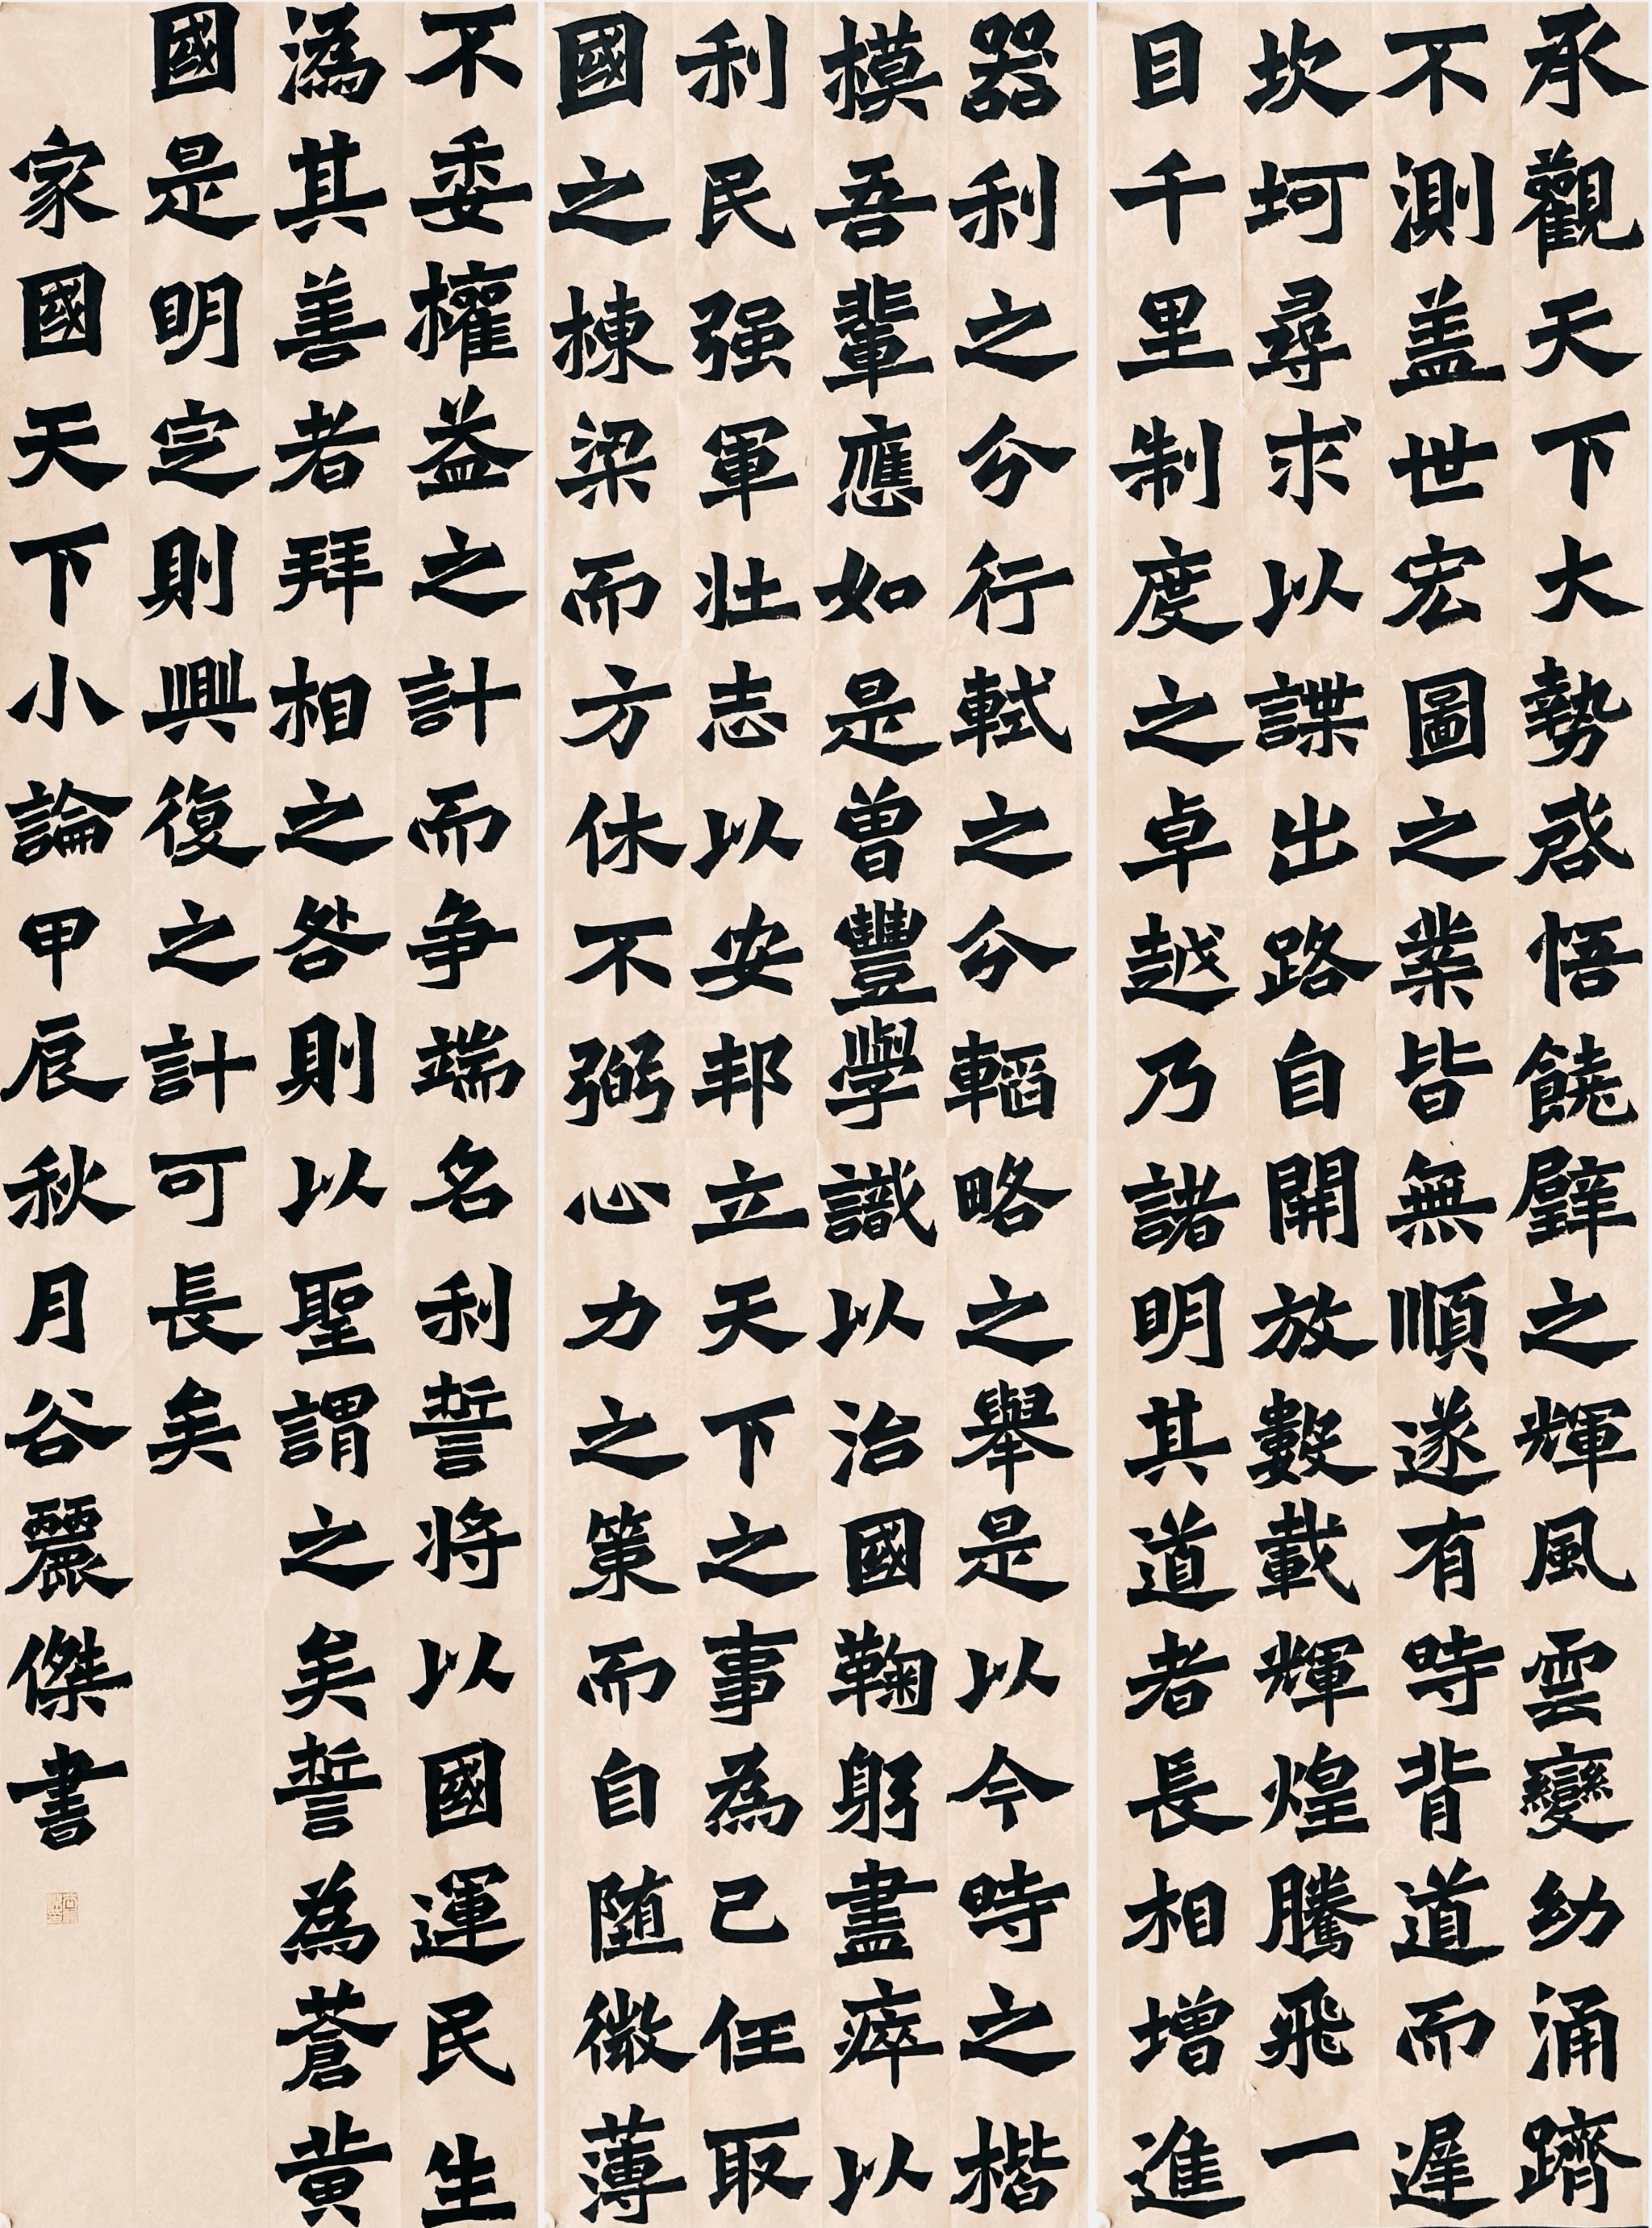 承觀天下大勢啓悟饒壁之輝風雲變幼涌躋
不測盖世宏圖之業皆無順遂有時背道而遲
坎坷尋求以諜出路自開放數載輝煌騰飛一
目千里制度之卓越乃諸明其道者長相增進
器利之分行軾之分轁略之舉是以今時之楷
模吾輩應如是曾豐學識以治國鞠躬盡瘁以
利民强軍壮志以安邦立天下之事為己任取
國之棟梁而方休不弼心力之策而自随微薄
不委權益之計而争端名利誓將以國運民生
溈其善者拜相之咎則以聖謂之矣誓為蒼黄
國是明定則興復之計可長矣
家國天下小論甲辰秋月谷麗傑書